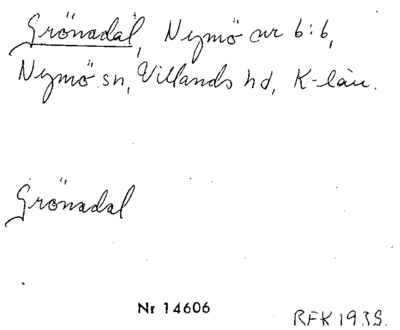 Grönadal, Nymö nr 6:6,
Nymö sn, Villands hd, K-län.
Grönadal
Nr 14606
RFK 1938.